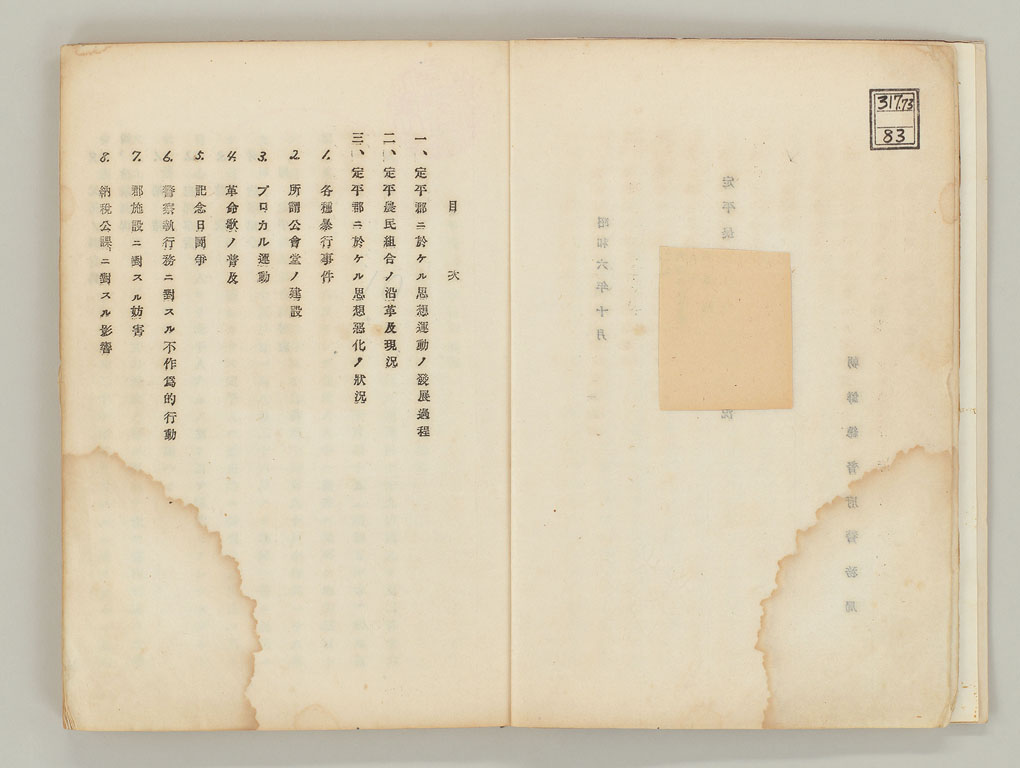 317.73
83
目次
一、定平郡ニ於ケル思想運動ノ發展過程
二、定平農民組合ノ沿革及現況
三、定平郡ニ於ケル思想惡化ノ狀況
1. 各種暴行事件
2. 所謂公會堂ノ建設
3. プロカル運動
4. 革命歌ノ普及
5. 記念日鬪爭
6. 警察執行務ニ對スル不作爲的行動
7. 郡施設ニ對スル妨害
8. 納稅公課ニ對スル影響
朝鮮總督府警務局
昭和六年十月